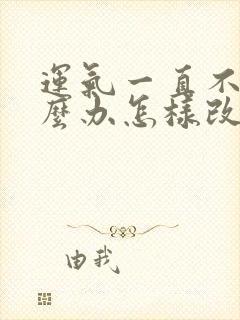 運氣一直不
麼办怎樣改
由我